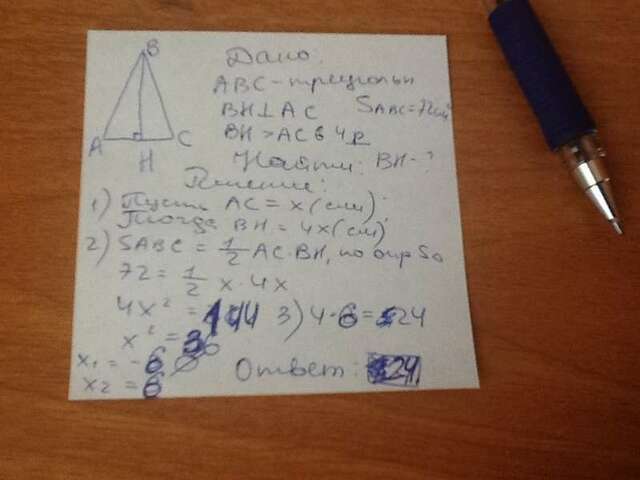 B
A
C
H
Дано:
ABC - треугольн
BH⊥AC SABC=72см²
BH > AC в 4 р
Найти: BH-?
Решение:
1) Пусть AC = x (см),
Тогда BH = 4x (см)
2) SABC = 1/2 AC·BH, по опр S△
72 = 1/2 x·4x
4x² = 144 3) 4·6 = 24
x² = 36
x₁ = -6 ∅
x₂ = 6
Ответ: 24.